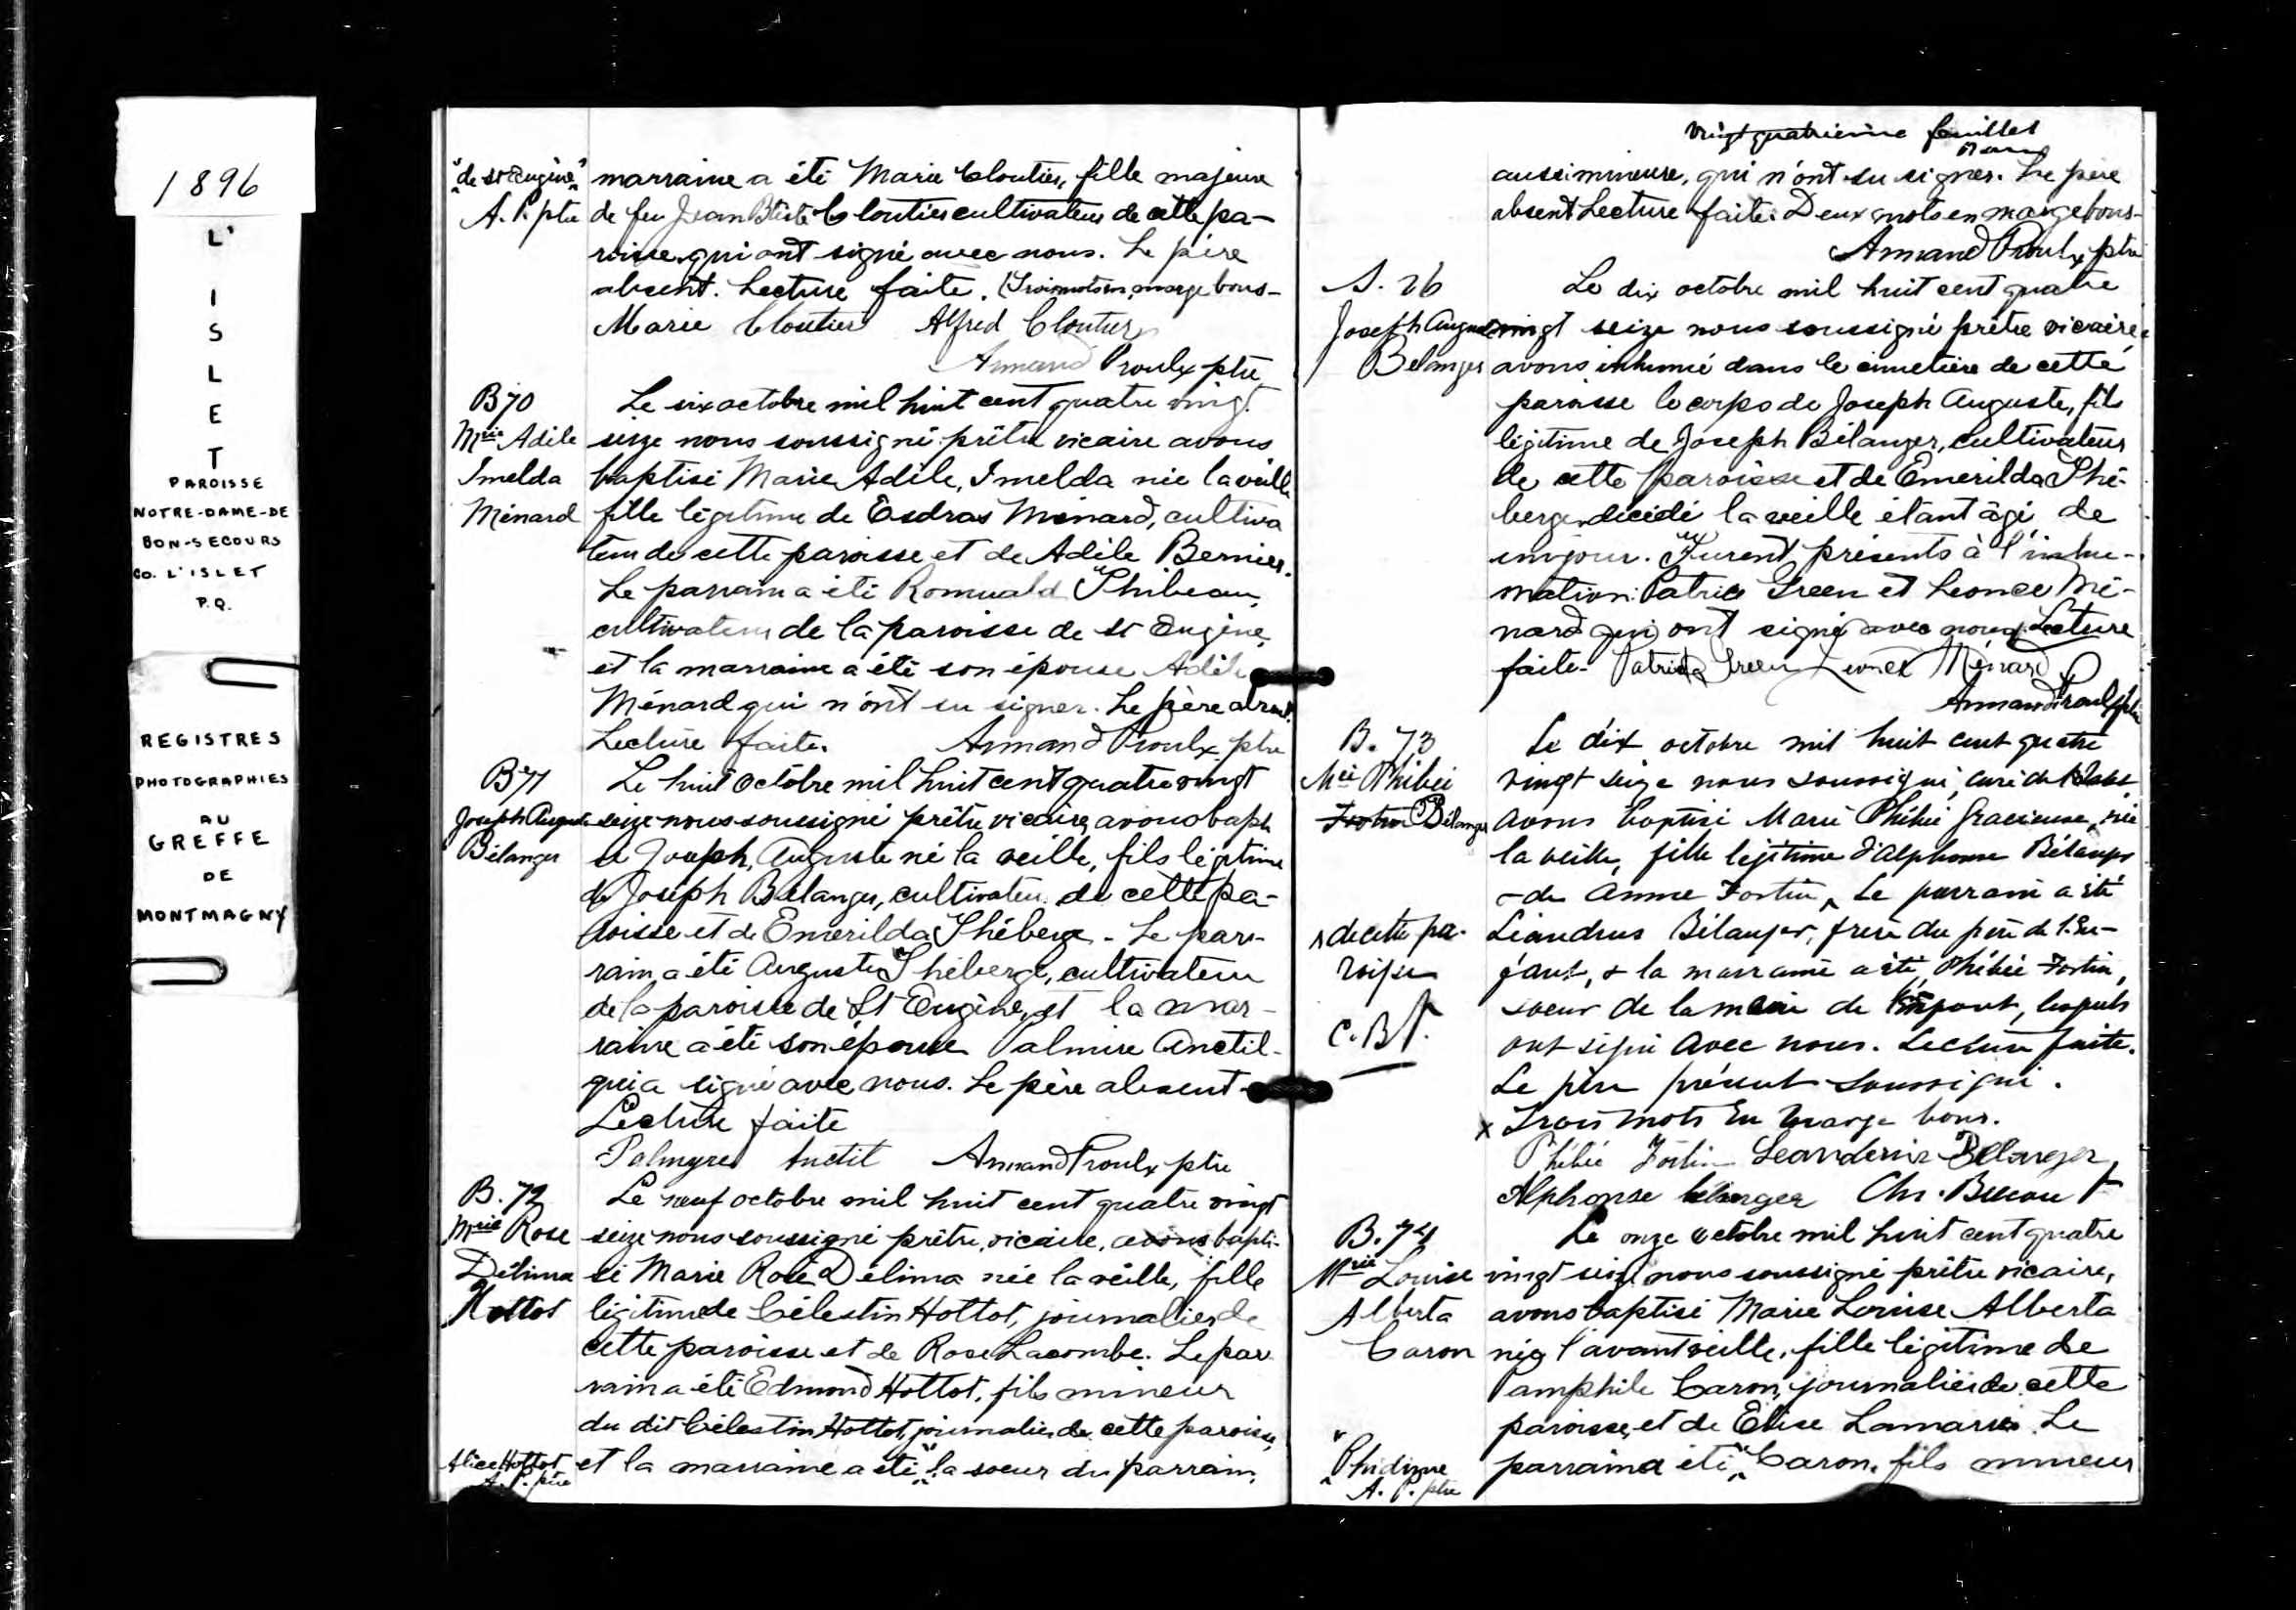 1896
L'
I
S
L
E
T
PAROISSE
NOTRE-DAME-DE
BON-SECOURS
CO. L'ISLET
P.Q.
REGISTRES
PHOTOGRAPHIES
AU
GREFFE
DE
MONTMAGNY
"de st Eugène"
A. P. ptre
marraine a été Marie Cloutier, fille majeure
de feu Jean Btiste Cloutier cultivateur de cette pa-
roisse, qui ont signé avec nous. Le père
absent. Lecture faite. Trois mots en marge bons-
Marie Cloutier Alfred Cloutier
Armand Proulx ptre
B 70
Mrie Adèle
Imelda
Ménard
Le six octobre mil huit cent quatre vingt
seize nous soussigné prêtre vicaire avons
baptisé Marie Adèle, Imelda née la veille
fille légitime de Esdras Ménard, cultiva
teur de cette paroisse et de Adèle Bernier.
Le parrain a été Romuald Thibeau,
cultivateur de la paroisse de st Eugène,
et la marraine a été son épouse Adèle
Ménard qui n'ont su signer. Le père absent.
Lecture faite. Armand Proulx ptre
B 71
Joseph Auguste
Bélanger
Le huit octobre mil huit cent quatre vingt
seize nous soussigné prêtre vicaire, avons bapti
sé Joseph, Auguste né la veille, fils légitime
de Joseph Bélanger, cultivateur de cette pa-
roisse et de Emerilda Théberge. Le par-
rain a été Auguste Théberge, cultivateur
de la paroisse de St Eugène, et la mar-
raine a été son épouse Palmire Anctil-
qui a signé avec nous. Le père absent-
Lecture faite
Palmyre Anctil Armand Proulx ptre
B. 72
Mrie Rose
Délima
Hottot
Le neuf octobre mil huit cent quatre vingt
seize nous soussigné prêtre, vicaire, avons bapti-
sé Marie Rose Délima née la veille, fille
légitime de Célestin Hottot, journalier de
cette paroisse et de Rose Lacombe. Le par
rain a été Edmond Hottot, fils mineur
du dit Célestin Hottot, journalier de cette paroisse,
et la marraine a été "" la soeur du parrain,
Alice Hottot
A. P. ptre
vingt quatrième feuillet
aussi mineure, qui n'ont su signer. Le père
absent Lecture faite. Deux mots en marge bons-
Armand Proulx ptre
S. 26
Joseph Auguste
Bélanger
Le dix octobre mil huit cent quatre
vingt seize nous soussigné prêtre vicaire,
avons inhumé dans le cimetière de cette
paroisse le corps de Joseph Auguste, fils
légitime de Joseph Bélanger, cultivateur
de cette paroisse et de Emerilda Thé-
berge, décédé la veille étant âgé de
un jour. Furent présents à l'inhu-
mation: Patrick Green et Leonce Mé-
nard qui ont signé avec nous. Lecture
faite- Patrick Green Léonce Ménard
Armand Proulx ptre
B. 73
Mrie Phibée
Fortin Bélanger
Le dix octobre mil huit cent quatre
vingt seize nous soussigné, curé de
avons baptisé Marie Phibée Gracieuse, née
la veille, fille légitime d'Alphonse Bélanger
& de Anna Fortin ^ Le parrain a été
Léandrus Bélanger, frère du père de l'En-
fant, & la marraine a été Phibée Fortin,
soeur de la mère de l'enfant, lesquels
ont signé avec nous. Lecture faite.
Le père présent soussigné.
x Trois mots en marge bons.
^ de cette pa-
roisse
C. B.
Phibée Fortin Bélanger
Alphonse Bélanger Chs. Bacon
B. 74
Mrie Louise
Alberta
Caron
Le onze octobre mil huit cent quatre
vingt seize nous soussigné prêtre vicaire,
avons baptisé Marie Louise Alberta
née l'avant veille, fille légitime de
Pamphile Caron, journalier de cette
paroisse, et de Elise Lamarre. Le
parrain a été "" Caron, fils mineur
A. P. ptre